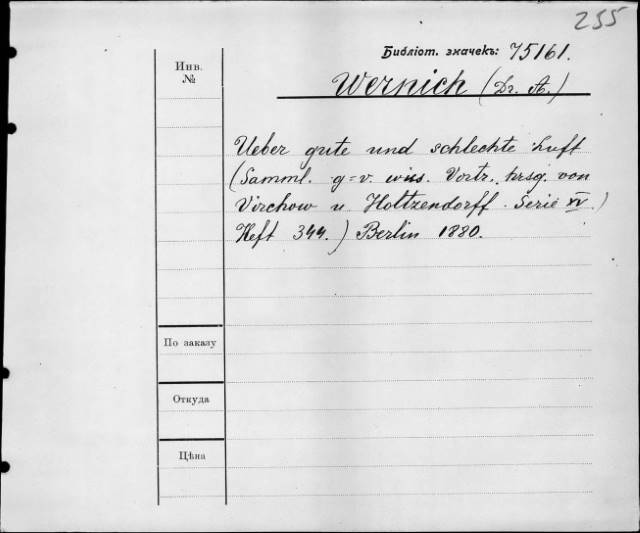 255
Библіот. значекъ: 75161.
Инв. №
Wernich (Dr. A.)
Ueber gute und schlechte Luft
(Samml. g=v. wiss. Vortr. hrsg. von
Virchow u. Holtzendorff. Serie XV.)
Heft 344.) Berlin 1880.
По заказу
Откуда
Цѣна